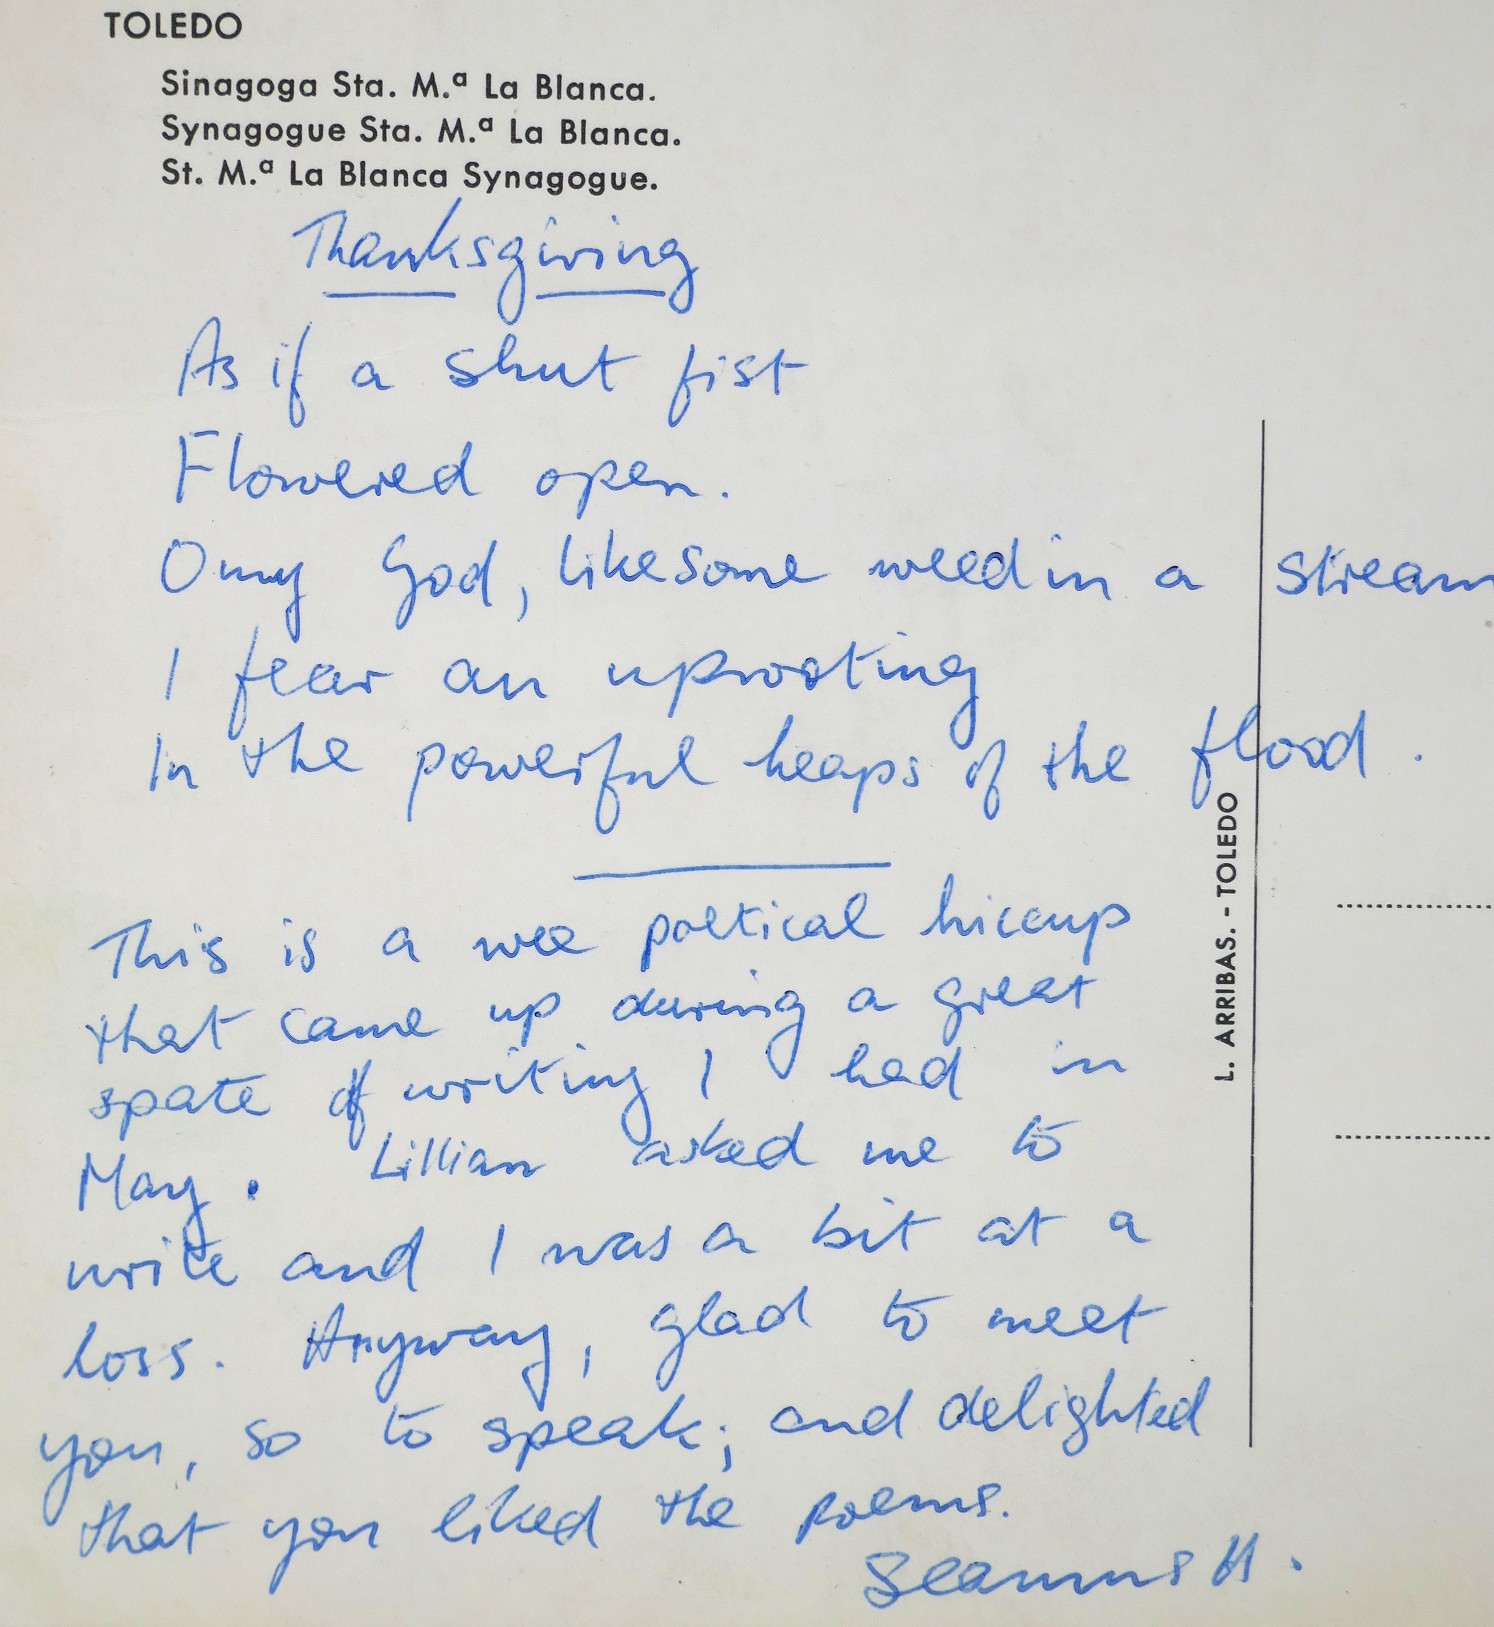 TOLEDO
Sinagoga Sta. M.ª La Blanca.
Synagogue Sta. M.ª La Blanca.
St. M.ª La Blanca Synagogue.
Thanksgiving
As if a shut fist
Flowered open.
O my God, like some weed in a stream
I fear an uprooting
In the powerful heaps of the flood.
This is a wee poetical hiccup
that came up during a great
spate of writing I had in
May. Lillian asked me to
write and I was a bit at a
loss. Anyway, glad to meet
you, so to speak; and delighted
that you liked the poems.
Seamus H.
L. ARRIBAS. - TOLEDO